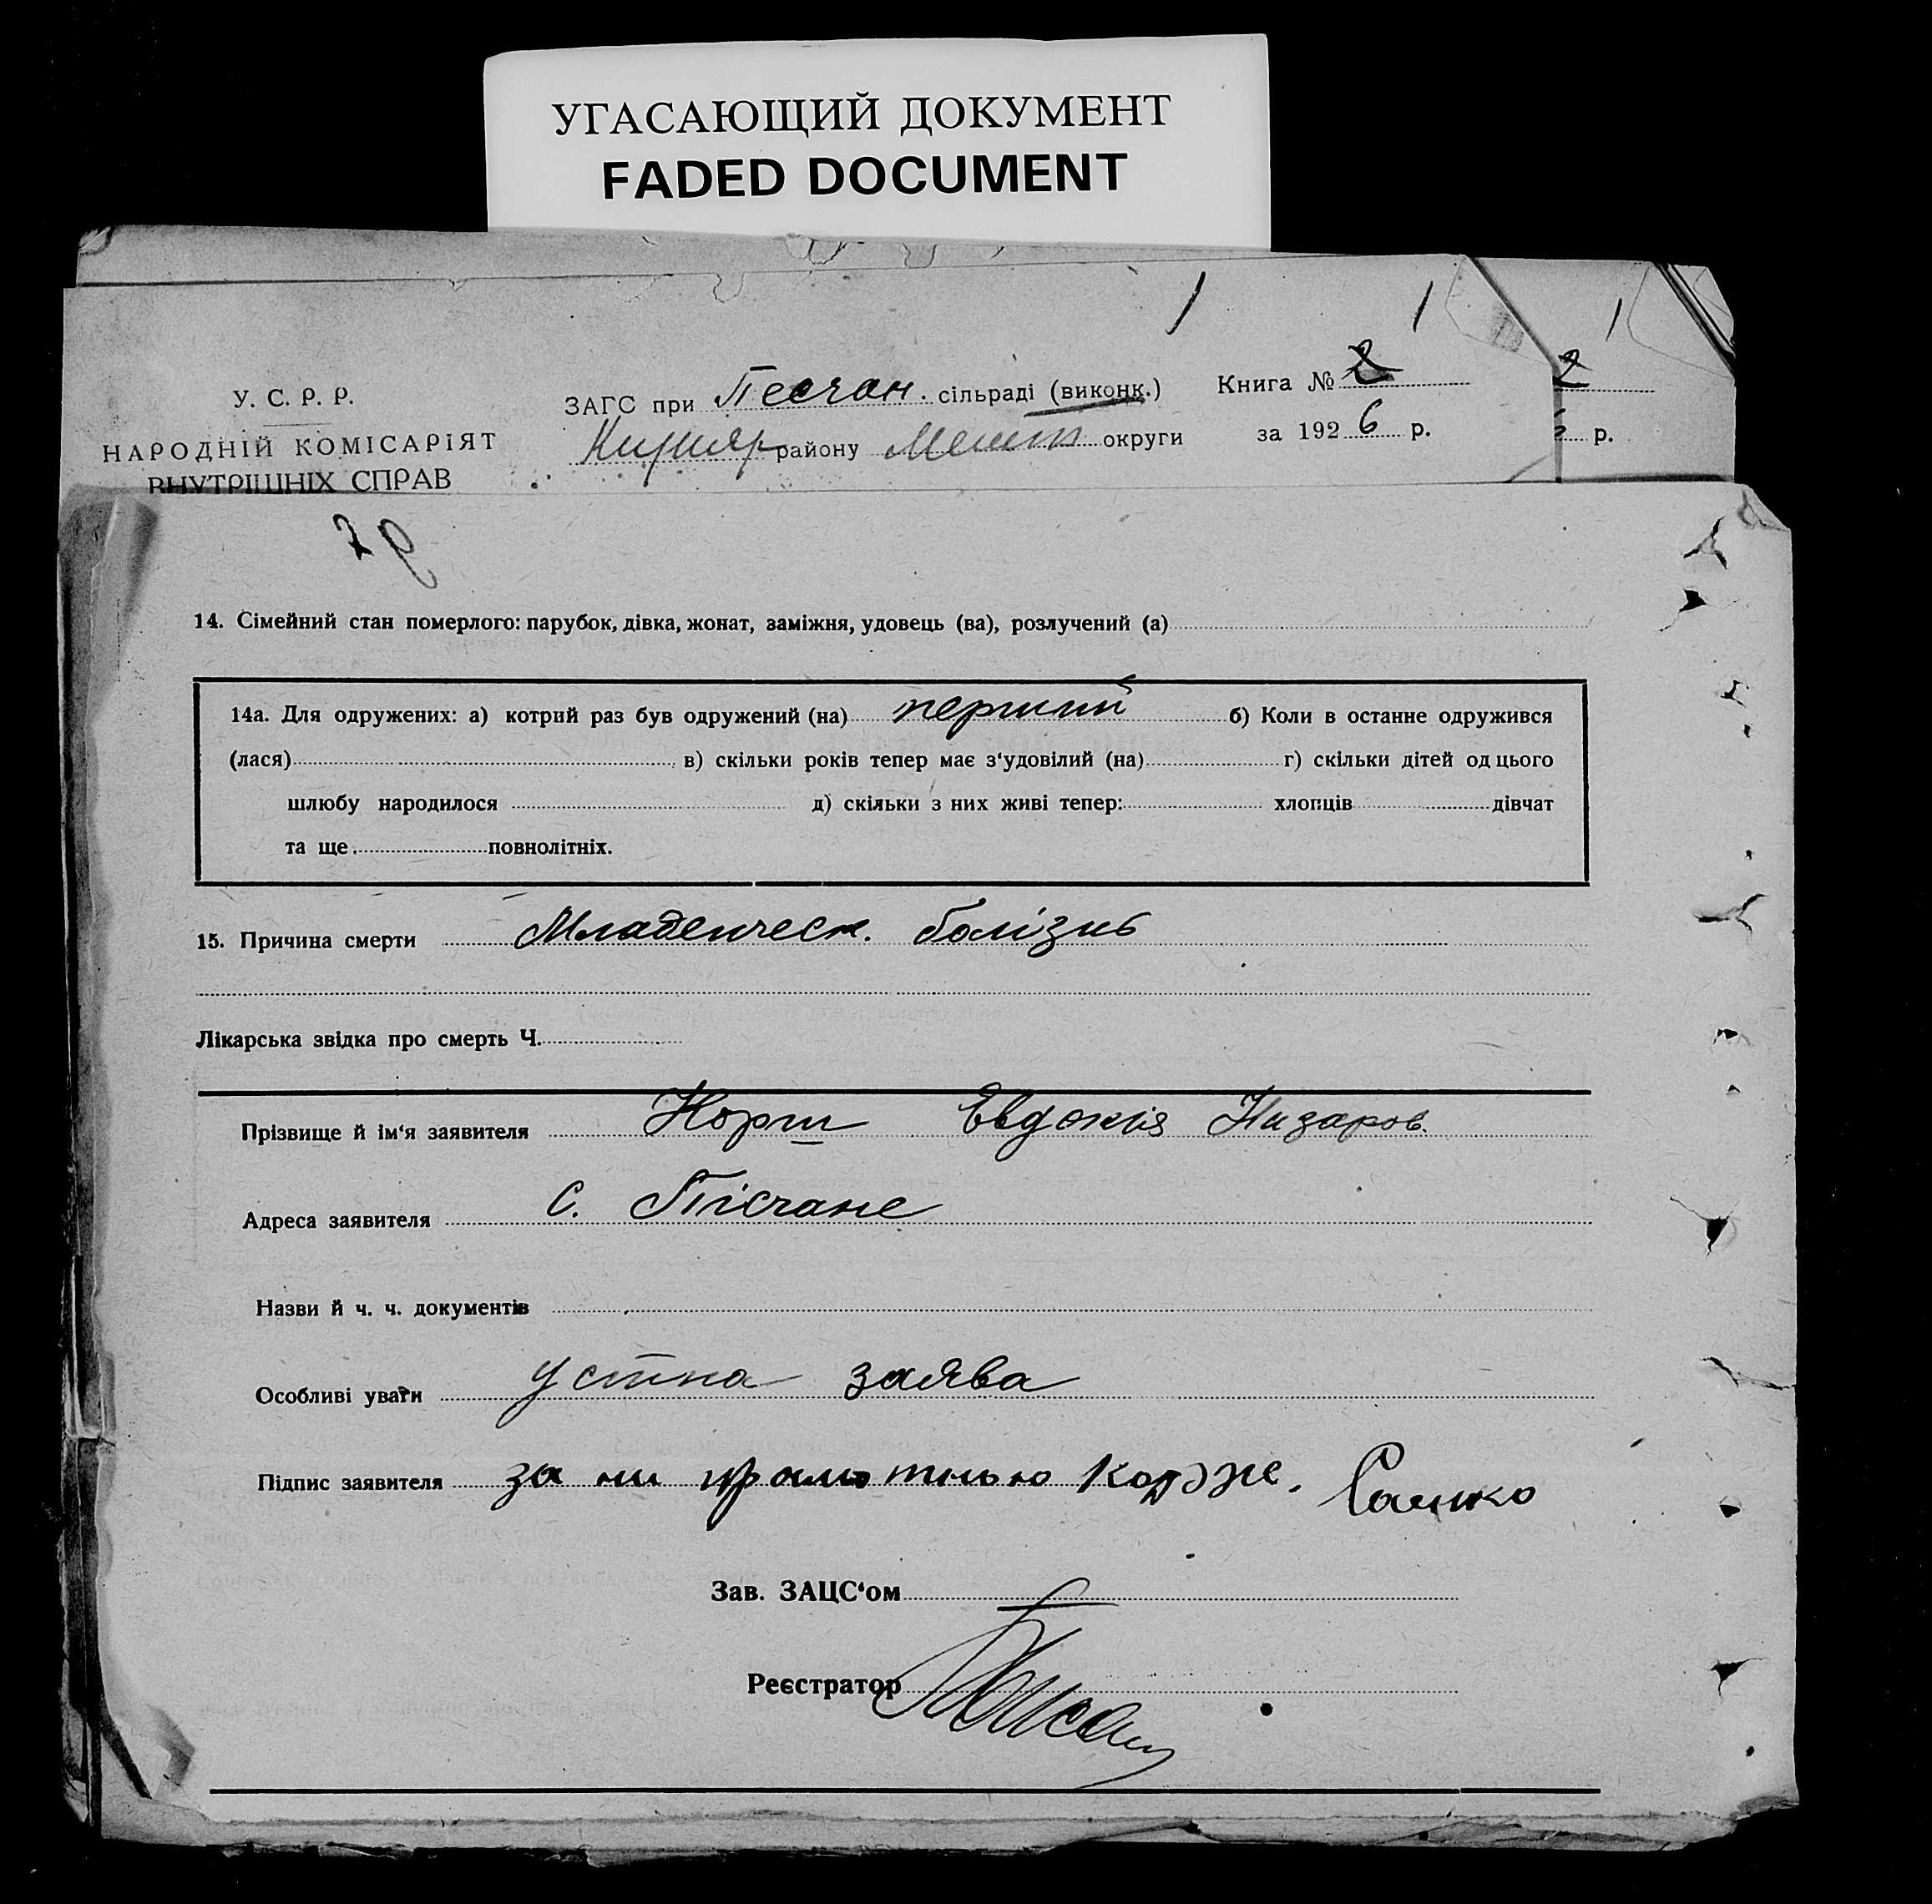 УГАСАЮЩИЙ ДОКУМЕНТ
FADED DOCUMENT
1 1 1
У. С. Р. Р.
НАРОДНІЙ КОМІСАРІЯТ
ВНУТРІШНІХ СПРАВ
ЗАГС при Песчан. сільраді (виконк.) Книга № 2 2
району округи за 1926 р. р.
14. Сімейний стан померлого: парубок, дівка, жонат, заміжня, удовець (ва), розлучений (а)
14а. Для одружених: а) котрий раз був одружений (на) перший б) Коли в останне одружився
(лася) в) скільки років тепер має з‘удовілий (на) г) скільки дітей од цього
шлюбу народилося д) скільки з них живі тепер: хлопців дівчат
та ще повнолітніх.
15. Причина смерти Младенческ. болізнь
Лікарська звідка про смерть Ч.
Прізвище й ім‘я заявителя Евдокія Назаров.
Адреса заявителя С. Пісчане
Назви й ч. ч. документів
Особливі уваги Устна заява
Підпис заявителя за ни грамотною Корже. Сашко
Зав. ЗАЦС‘ом
Реєстратор